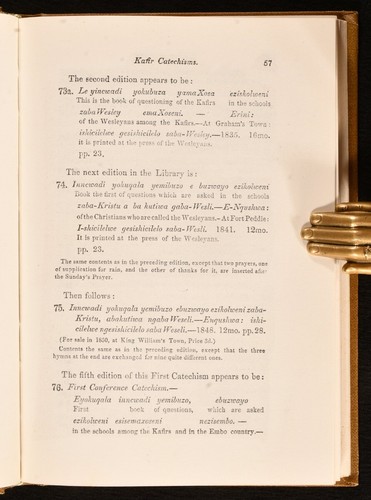 Kafir Catechisms. 67
The second edition appears to be :
73a. Le yincwadi yokubuza yamaXosa eziskolweni
This is the book of questioning of the Kafirs in the schools
zabaWesley emaXoseni. — Erini:
of the Wesleyans among the Kafirs.—At Graham's Town:
ishicilelwe gesishicilelo saba-Wesley.—1835. 16mo.
it is printed at the press of the Wesleyans.
pp. 23.
The next edition in the Library is :
74. Inncwadi yokuqala yemibuzo e buzwayo ezikolweni
Book the first of questions which are asked in the schools
zaba-Kristu a ba kutiwa gaba-Wesli.—E-Nqushwa:
of the Christians who are called the Wesleyans.-At Fort Peddie:
I-shicilelwe gesishicilelo saba-Wesli. 1841. 12mo.
It is printed at the press of the Wesleyans.
pp. 23.
The same contents as in the preceding edition, except that two prayers, one
of supplication for rain, and the other of thanks for it, are inserted after
the Sunday's Prayer.
Then follows :
75. Inncwadi yokuqala yemibuzo ebuzwayo ezikolweni zaba-
Kristu, abakutiwa ngabaWeseli.—Enqushwa: ishi-
cilelwe ngesishicilelo sabaWeseli.—1848. 12mo. pp. 28.
(For sale in 1850, at King William's Town, Price 3d.)
Contents the same as in the preceding edition, except that the three
hymns at the end are exchanged for nine quite different ones.
The fifth edition of this First Catechism appears to be :
76. First Conference Catechism.—
Eyokuqala inncwadi yemibuzo, ebuzwayo
First book of questions, which are asked
ezikolweni esisemaxoseni nezisembo. —
in the schools among the Kafirs and in the Embo country.—